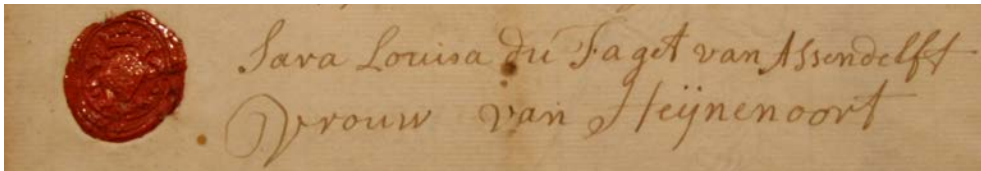 Sara Louisa du Faget van Assendelft
Vrouw van Heijnenoort